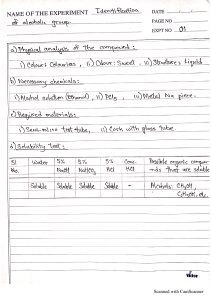 NAME OF THE EXPERIMENT Identification
DATE
of alcoholic group.
PAGE NO
EXPT NO 01
a) Physical analysis of the compound:
i) Colour: Colourless, ii) Odour: Sweet, iii) Structure: Liquid
b) Necessary chemicals:
i) Alcohol solution (Ethanol), ii) PCl5, iii) Metal Na piece.
c) Required materials:
i) Semi-micro test tube, ii) Cork with glass tube.
d) Solubility test:
Sl No. Water 5% NaOH 5% NaHCO3 5% HCl Conc. HCl Possible organic compounds that are soluble
Soluble Soluble Soluble Soluble - Alcohols: CH3OH,
C2H5OH, etc.
Scanned with CamScanner